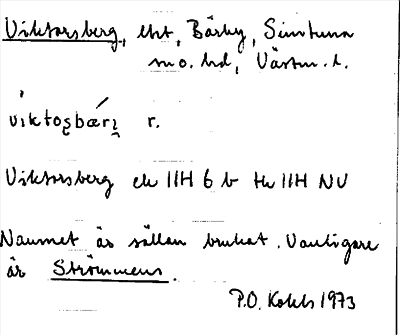 Viktorsberg, lht, Bärby, Simtuna
sn o. hd, Västm. l.
víktoʂbæri r.
Viktorsberg ek 11H 6 b tk 11H NV
Namnet är sällan brukat. Vanligare
är Strömmens.
P.O. Kohls 1973